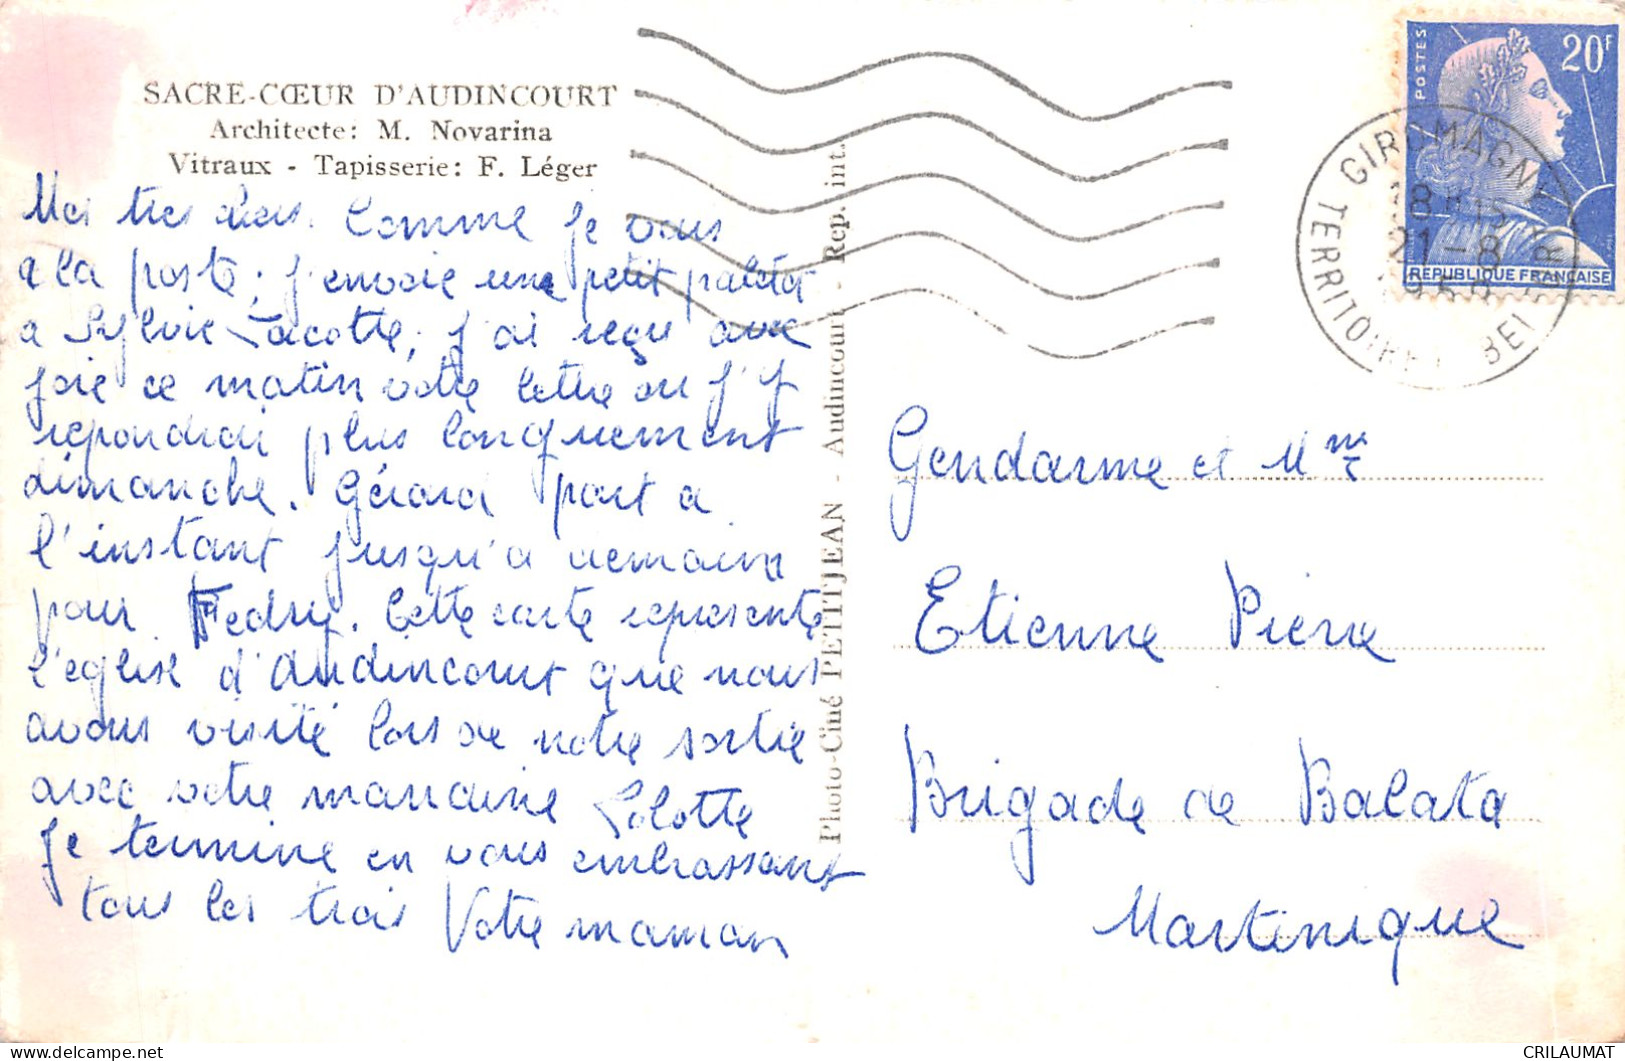 SACRE-CŒUR D'AUDINCOURT
Architecte: M. Novarina
Vitraux - Tapisserie: F. Léger
Mes tres chers. Comme je vais
a la poste, j'envoie une petit paletot
a Sylvie Lacotte, j'ai reçu avec
joie ce matin votre lettre ou j'y
repondrai plus longuement
dimanche. Gérard part a
l'instant jusqu'a demain
pour Fedry. Cette carte represente
l'eglise d'Audincourt que nous
avons visité lors de notre sortie
avec votre marraine Lolotte
Je termine en vous embrassant
tous les trois Votre maman
Photo-Ciné PETITJEAN - Audincourt - Rep. int.
POSTES
20F
REPUBLIQUE FRANÇAISE
GIROMAGNY
18 H 15
21-8
TERRITOIRE
Gendarme et Mme
Etienne Pierre
Brigade de Balata
Martinique
CRILAUMAT